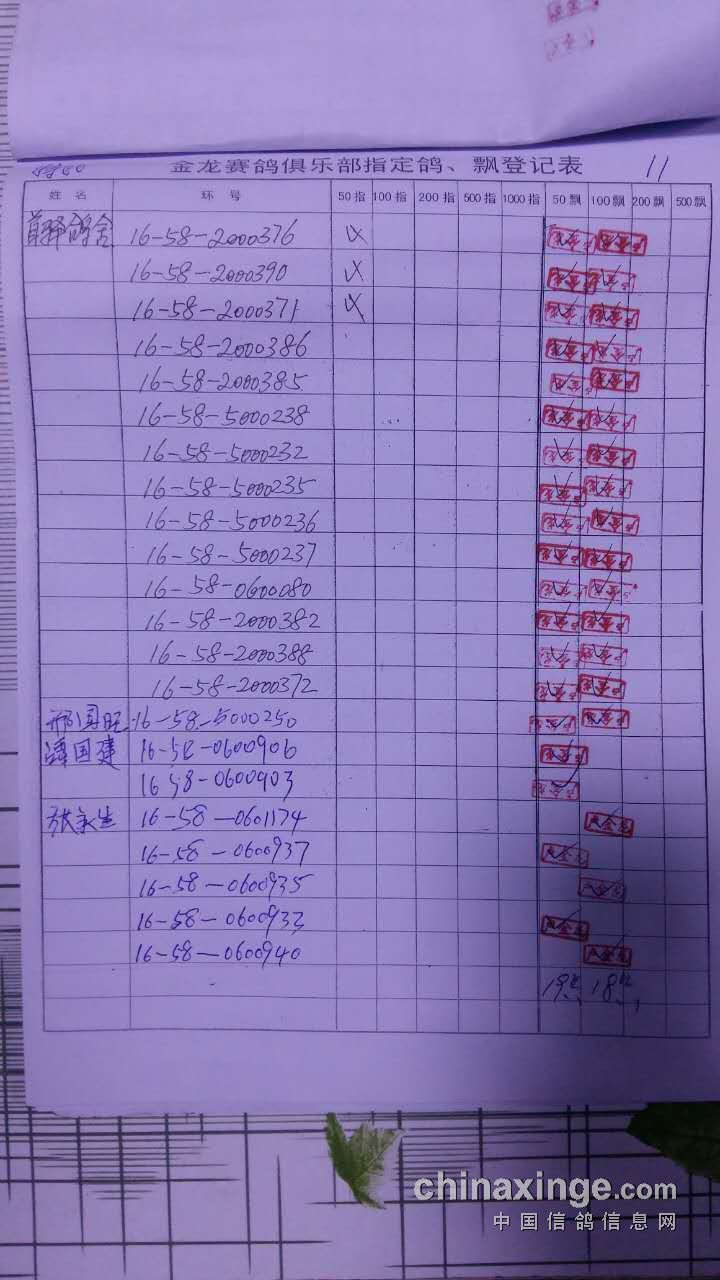 金龙赛鸽俱乐部指定鸽、飘登记表 11
姓 名 环 号 50指 100指 200指 500指 1000指 50飘 100飘 200飘 500飘
鸽舍 16-58-2000376
16-58-2000390
16-58-2000371
16-58-2000386
16-58-2000385
16-58-5000238
16-58-5000232
16-58-5000235
16-58-5000236
16-58-5000237
16-58-0600080
16-58-2000382
16-58-2000388
16-58-2000372
邢国旺 16-58-5000250
潘国建 16-58-0600906
16 58-0600903
张永生 16-58-0601174
16-58-0600937
16-58-0600935
16-58-0600933
16-58-0600940
19 18
chinaxinge.com
中国信鸽信息网